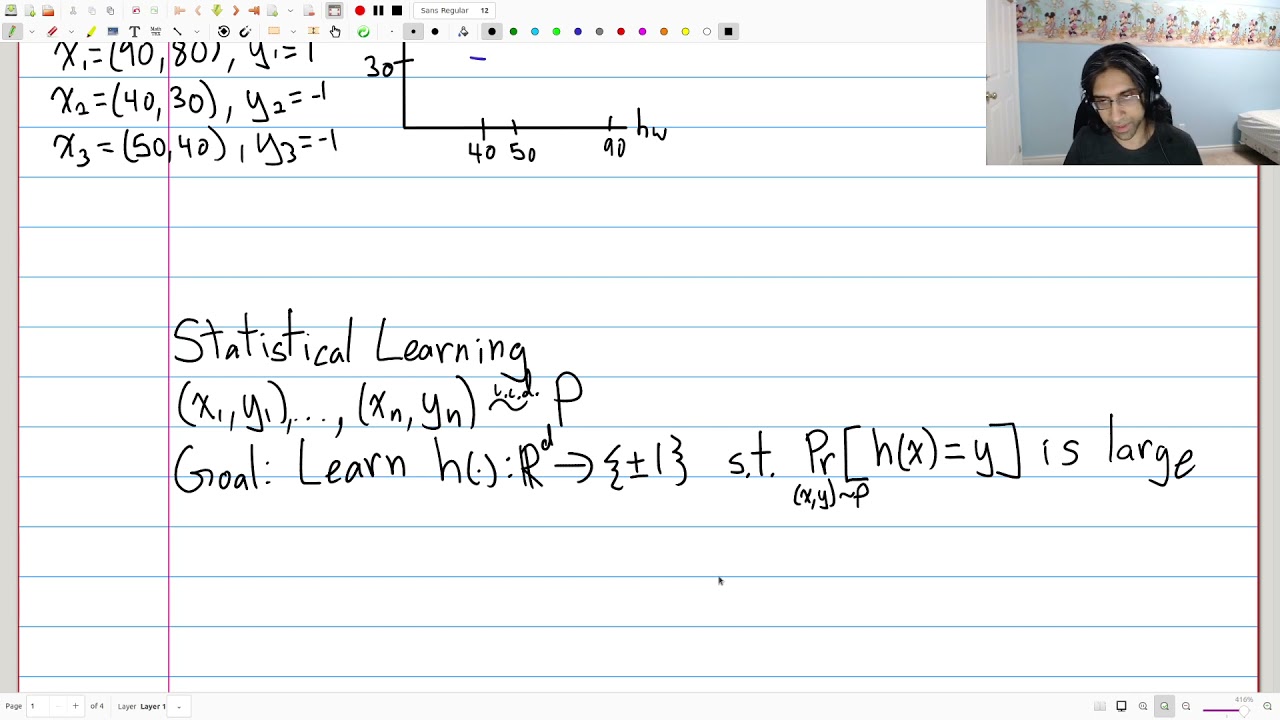 Sans Regular 12
x₁=(90,80), y₁=1
x₂=(40,30), y₂=-1
x₃=(50,40), y₃=-1
30
40 50 90 hw
Statistical Learning
(x₁,y₁),...,(xₙ,yₙ) i.i.d. ~ P
Goal: Learn h(·):ℝᵈ→{±1} s.t. Pr[h(x)=y] is large
(x,y)~P
Page 1 of 4 Layer Layer 1 416%